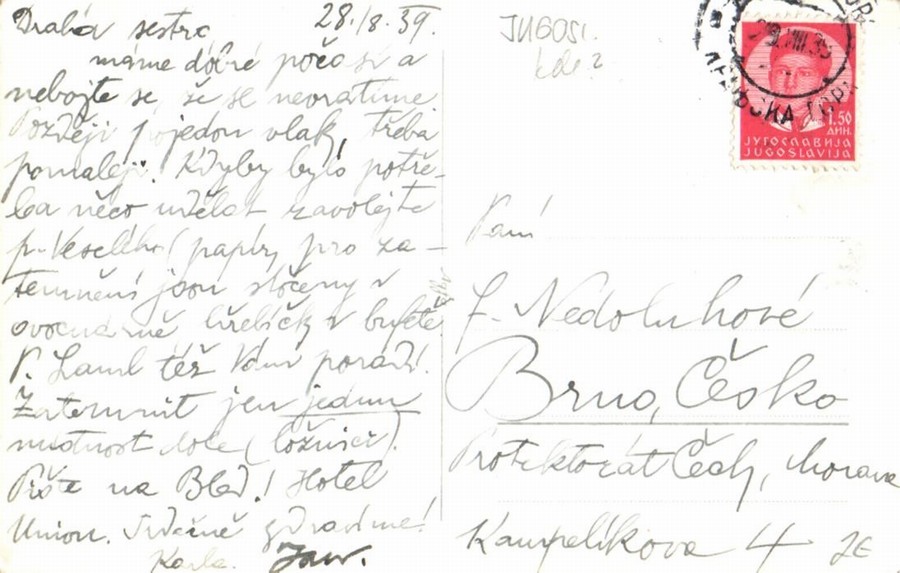 28./8.39.
Drahá sestro
máme dobré počasí a
nebojte se, že se nevrátíme
Později pojedou vlak, třeba
pomaleji. Kdyby bylo potře-
ba něco udělat zavolejte
p. Veselého (papíry pro za-
temnění jsou stočeny v
ovocnárně v bufetě
P. Laml též Vám poradí.
Zatemnit jen jednu
místnost dole (ložnici).
Pište na Bled! Hotel
Union. Srdečně zdravíme!
Karla. Jar.
JUGOSL.
kde?
1.50
ДИН.
ЈУГОСЛАВИЈА
JUGOSLAVIJA
Paní
F. Nedoluhové
Brno, Česko
Protektorát Čech, Morava
Kampelíkova 4
2€